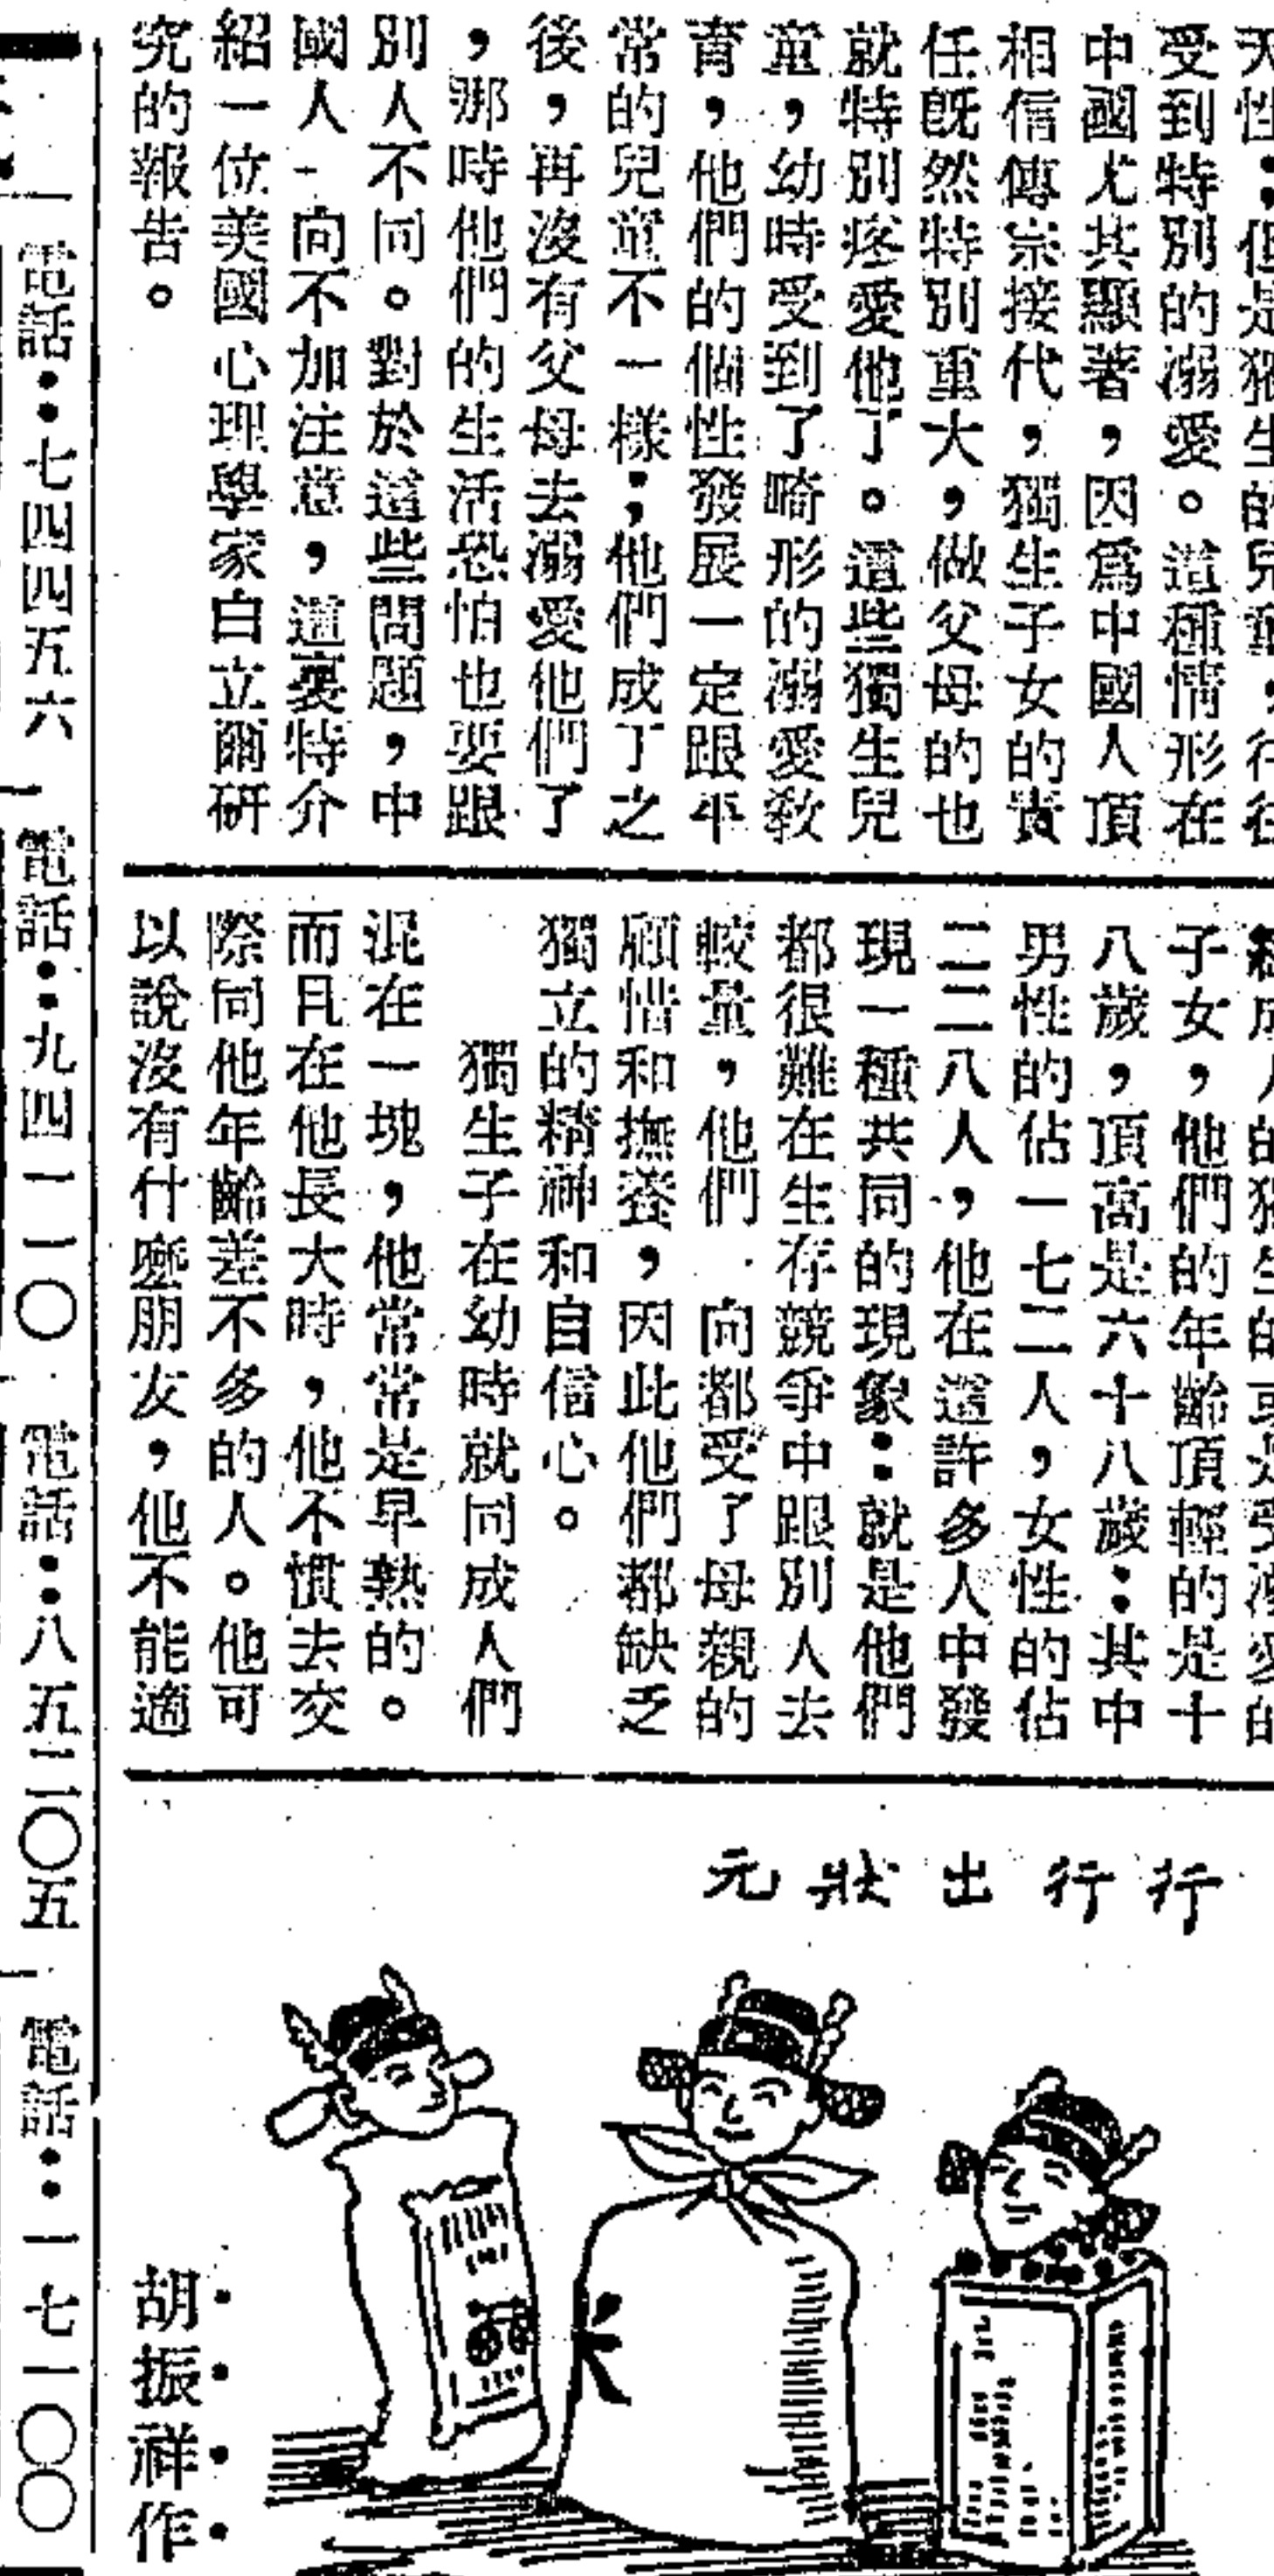 天性；但是獨生的兒童，往往
受到特別的溺愛。這種情形在
中國尤其顯著，因爲中國人頂
相信傳宗接代，獨生子女的責
任旣然特別重大，做父母的也
就特別疼愛他了。這些獨生兒
童，幼時受到了畸形的溺愛敎
育，他們的個性發展一定跟平
常的兒童不一樣；他們成了之
後，再沒有父母去溺愛他們了
，那時他們的生活恐怕也要跟
別人不同。對於這些問題，中
國人一向不加注意，這裏特介
紹一位美國心理學家白立爾研
究的報告。
成人的獨生的或是受溺愛的
子女，他們的年齡頂輕的是十
八歲，頂高是六十八歲：其中
男性的佔一七二人，女性的佔
二二八人，他在這許多人中發
現一種共同的現象：就是他們
都很難在生存競爭中跟別人去
較量，他們 向都受了母親的
顧惜和撫養，因此他們都缺乏
獨立的精神和自信心。
獨生子在幼時就同成人們
混在一塊，他常常是早熟的。
而且在他長大時，他不慣去交
際同他年齡差不多的人。他可
以說沒有什麼朋友，他不能適
行行出狀元
米
胡振祥作
電話：七四四五六
電話：九四一一〇
電話：八五二〇五
電話：一七一〇〇